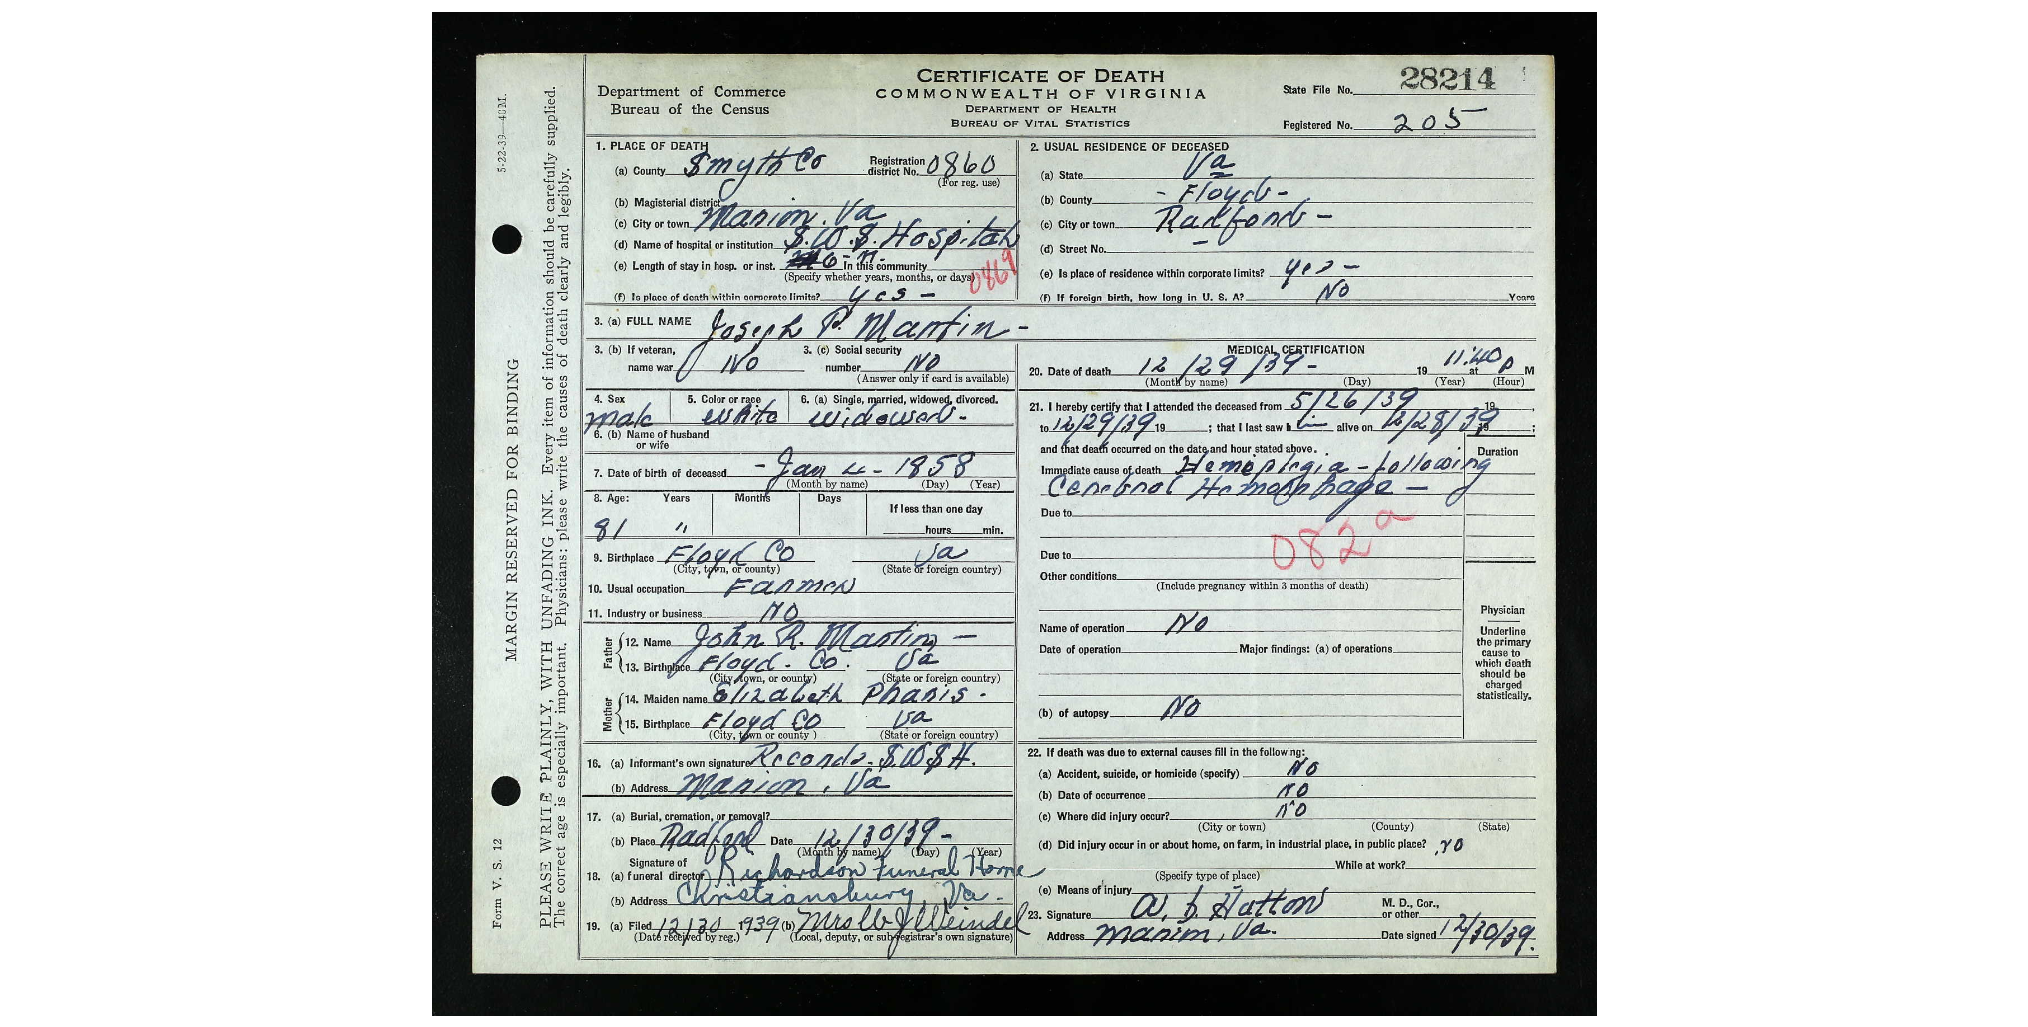 CERTIFICATE OF DEATH
COMMONWEALTH OF VIRGINIA
DEPARTMENT OF HEALTH
BUREAU OF VITAL STATISTICS
Department of Commerce
Bureau of the Census
State File No. 28214
Registered No. 205
5-22-39—40M.
MARGIN RESERVED FOR BINDING
Form V. S. 12
PLEASE WRITE PLAINLY, WITH UNFADING INK. Every item of information should be carefully supplied.
The correct age is especially important. Physicians: please write the causes of death clearly and legibly.
1. PLACE OF DEATH
(a) County Smyth Co Registration district No. 0860
(For reg. use)
(b) Magisterial district
(c) City or town Marion, Va
(d) Name of hospital or institution S.W.S. Hospital
(e) Length of stay in hosp. or inst. 6-m. In this community
(Specify whether years, months, or days)
0869
(f) Is place of death within corporate limits? yes -
2. USUAL RESIDENCE OF DECEASED
(a) State Va
(b) County - Floyd -
(c) City or town Radford -
(d) Street No. -
(e) Is place of residence within corporate limits? yes -
(f) If foreign birth, how long in U. S. A? No Years
3. (a) FULL NAME Joseph P. Martin -
3. (b) If veteran, name war No
3. (c) Social security number No
(Answer only if card is available)
4. Sex male
5. Color or race white
6. (a) Single, married, widowed, divorced. widowed -
6. (b) Name of husband or wife
7. Date of birth of deceased - Jan 4 - 1858
(Month by name) (Day) (Year)
8. Age: Years Months Days If less than one day
81 " hours min.
9. Birthplace Floyd Co Va
(City, town, or county) (State or foreign country)
10. Usual occupation Farmer
11. Industry or business No
Father
12. Name John R. Martin -
13. Birthplace Floyd - Co. Va
(City, town, or county) (State or foreign country)
Mother
14. Maiden name Elizabeth Pharis -
15. Birthplace Floyd Co Va
(City, town or county ) (State or foreign country)
16. (a) Informant's own signature Records - S.W.S.H.
(b) Address Marion, Va
17. (a) Burial, cremation, or removal?
(b) Place Radford Date 12/30/39-
(Month by name) (Day) (Year)
18. (a) Signature of funeral director Richardson Funeral Home
(b) Address Christiansburg Va -
19. (a) Filed 12/30 1939 (b) Mrs W J Weindel
(Date received by reg.) (Local, deputy, or sub-registrar's own signature)
MEDICAL CERTIFICATION
20. Date of death 12/29/39- 19 at 11:40 P M
(Month by name) (Day) (Year) (Hour)
21. I hereby certify that I attended the deceased from 5/26/39 19 ,
to 12/29/39 19 ; that I last saw him alive on 12/28/39 19 ;
and that death occurred on the date and hour stated above. Duration
Immediate cause of death Hemiplegia - following
Cerebral Hemorrhage -
Due to
082a
Due to
Other conditions
(Include pregnancy within 3 months of death)
Name of operation No
Date of operation Major findings: (a) of operations
(b) of autopsy No
Physician
Underline the primary cause to which death should be charged statistically.
22. If death was due to external causes fill in the following:
(a) Accident, suicide, or homicide (specify) No
(b) Date of occurrence no
(c) Where did injury occur? no
(City or town) (County) (State)
(d) Did injury occur in or about home, on farm, in industrial place, in public place? no
While at work?
(Specify type of place)
(e) Means of injury
23. Signature M. D., Cor., or other
Address Marion, Va. Date signed 12/30/39.